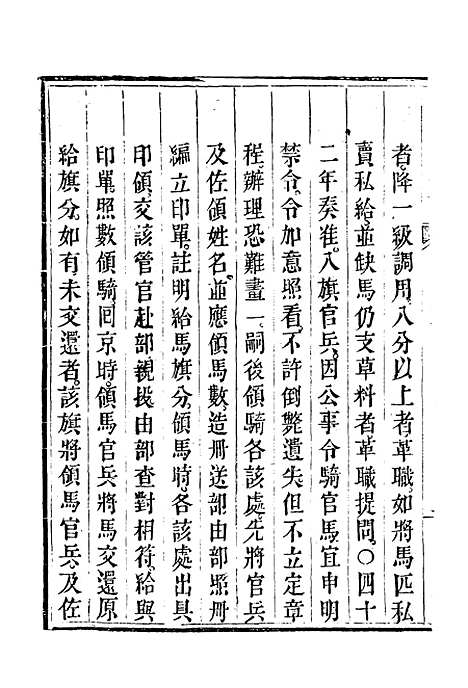 者降一級調用。八分以上者。革職。如將馬匹私
賣私給。並缺馬仍支草料者。革職提問。○四十
二年奏准。八旗官兵。因公事令騎官馬。宜申明
禁令。令加意照看。不許倒斃遺失。但不立定章
程。辦理恐難畫一。嗣後領騎各該處。先將官兵
及佐領姓名。並應領馬數。造冊送部。由部照冊
編立印單。註明給馬旗分。領馬時。各該處出具
印領。交該管官赴部親投。由部查對相符。給與
印單。照數領騎。回京時。領馬官兵。將馬交還原
給旗分。如有未交還者。該旗將領馬官兵。及佐